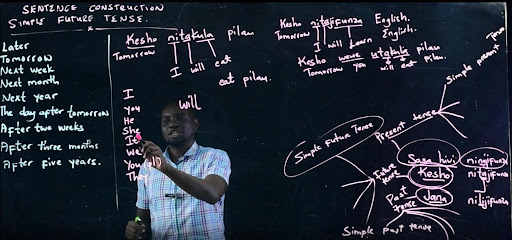 SENTENCE CONSTRUCTION
SIMPLE FUTURE TENSE.
Later
Tomorrow
Next week
Next month
Next year
The day after tomorrow
After two weeks
After three months
After five years.
Kesho nitakula pilau
Tomorrow I will eat
eat pilau.
I
you
He
She
It
We
You
They
will
Kesho nitajifunza English.
Tomorrow I will Learn English.
Kesho wewe utakula pilau
Tomorrow you will eat pilau.
Simple present
Tense
Present tense
Simple Future Tense
Sasa hivi ninjifunza
Future tense
Kesho nitajifunza
Past tense
Jana nilijifunza
Simple past tense